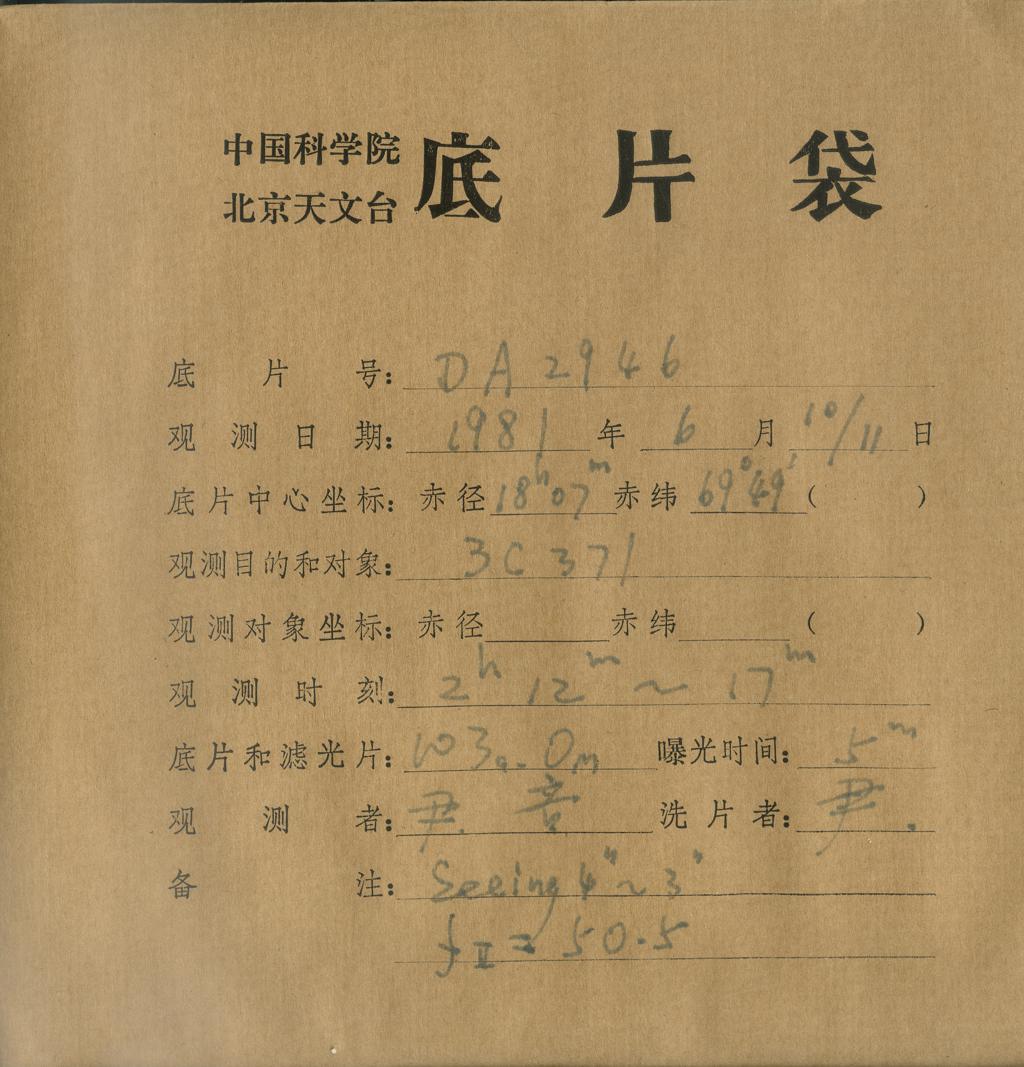 中国科学院
北京天文台
底片袋
底片号: DA2946
观测日期: 1981年 6月 10/11日
底片中心坐标: 赤径 18ʰ07ᵐ 赤纬 69°49′ ( )
观测目的和对象: 3C 371
观测对象坐标: 赤径 赤纬 ( )
观测时刻: 2ʰ 12ᵐ ~ 17ᵐ
底片和滤光片: 103a-O 曝光时间: 5ᵐ
观测者: 尹. 洗片者: 尹.
备注: Seeing 4″~3″
fⅡ = 50.5